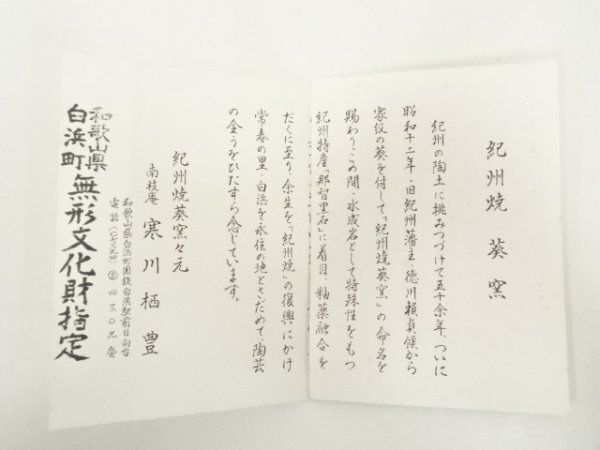 紀州焼 葵窯
紀州の陶土に挑みつづけて五十余年、ついに
昭和十二年、旧紀州藩主・徳川頼貞候から
家紋の葵を付して「紀州焼葵窯」の命名を
賜わり、この間、水成岩として特殊性をもつ
紀州特産「那智黒石」に着目、釉薬融合を
だくに至り、余生を「紀州焼」の復興にかけ
常春の里・白浜を永住の地とさだめて、陶芸
の全うをひたすら念じています。
紀州焼葵窯々元
南枝庵 寒川栖豊
和歌山県白浜町国鉄白浜駅前日向台
電話
四三〇九番
和歌山県
白浜町 無形文化財指定